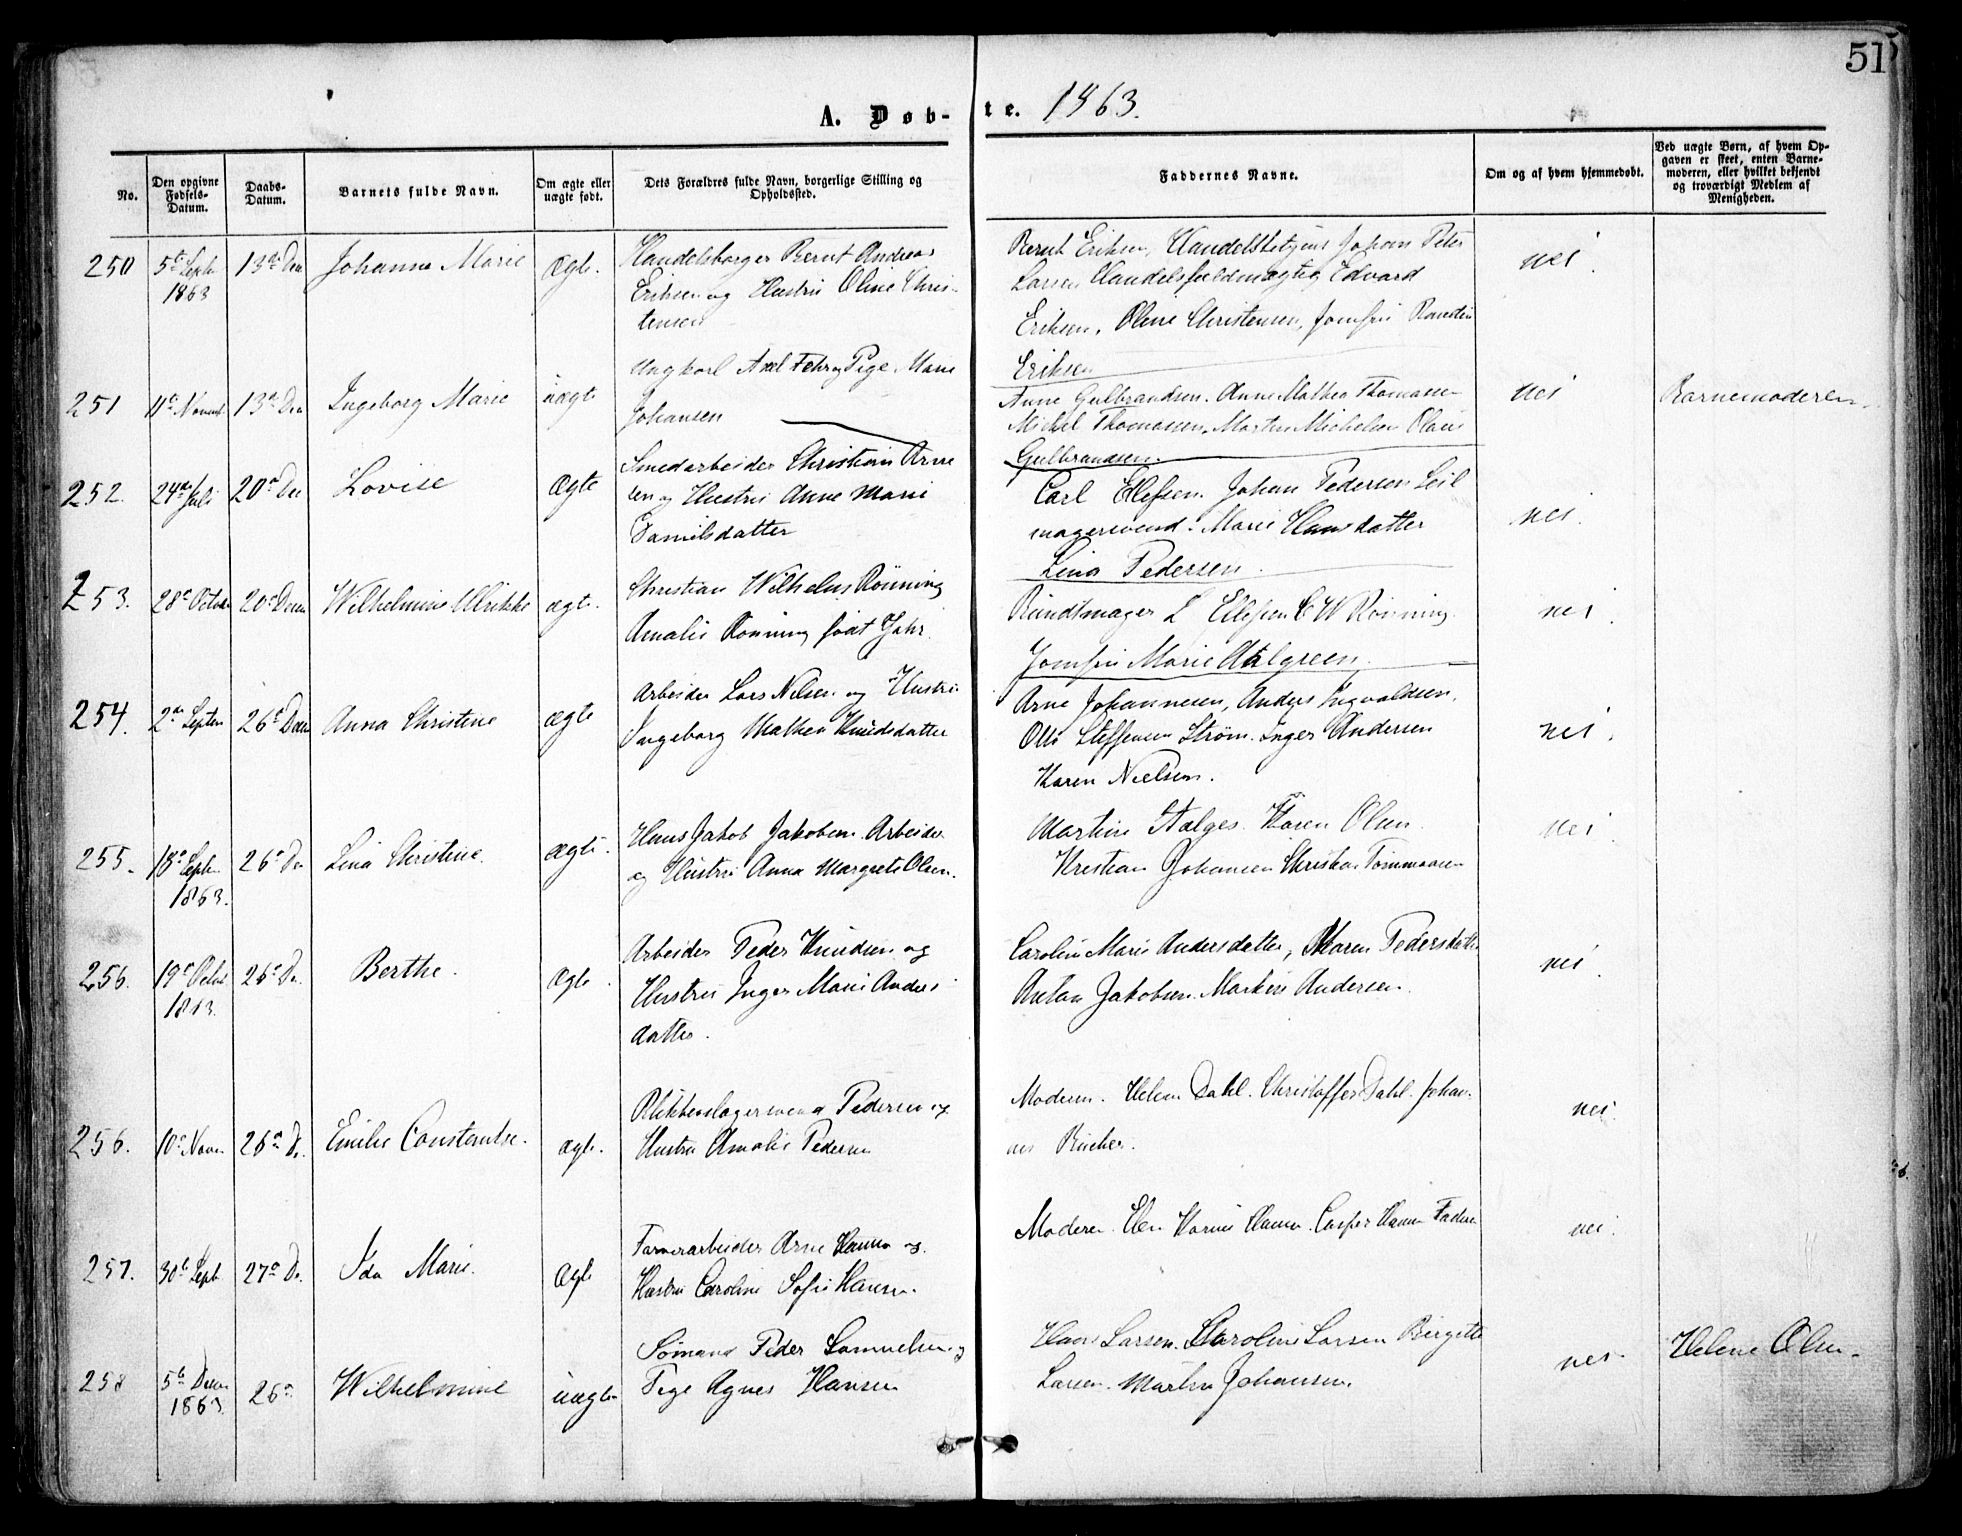 51
A. Døb- te. 1863.
No.
Den opgivne Fødsels-Datum.
Daabs-Datum.
Barnets fulde Navn.
Om ægte eller uægte født.
Dets Forældres fulde Navn, borgerlige Stilling og Opholdssted.
Faddernes Navne.
Om og af hvem hjemmedøbt.
Ved uægte Børn, af hvem Opgaven er skeet, enten Barnemoderen, eller hvilket bekjendt og troværdigt Medlem af Menigheden.
250 5te Septb 1863 13de Dec Johanne Marie Ægte.
Handelsborger Bernt Andreas
Eriksen og Hustru Oline Chris-
tensen
Bernt Eriksen, Handelsbetjent Johan Peter
Larsen Handelsfuldmægtig Edvard
Eriksen, Oline Christensen, Jomfru Randin
Eriksen
nei
251 11te Novemb 13de Dec Ingeborg Marie uægte
Ungkarl Axel Fehr og Pige Marie
Johansen
Anne Gulbrandsen. Anne Mathea Thomassen
Michel Thomassen, Martin Michelsen Olaus
Gulbrandsen.
nei
Barnemoderen
252. 24de Juli 20de Dec Lovise Ægte
Smedarbeider Christian Arne
sen og Hustru Anne Marie
Danielsdatter
Carl Ellefsen. Johan Pedersen Seil
magersvend. Marie Hansdatter
Lina Pedersen.
nei.
253. 28de Octob 20de Decem Wilhelmine Ulrikke ægte.
Christian Wilhelm Rönning
Amalie Rönning født Jahr.
Bundtmager L Ellefsen C W Rönning.
Jomfru Marie Ahlgreen.
nei
254. 2den Septem 26de Decem Anna Christine ægte
Arbeider Lars Nilsen og Hustru
Ingeborg Mathea Knudsdatter
Arne Johannesen, Anders Ingvaldsen,
Otto Steffensen Strøm. Inger Andersen
Karen Nielsen.
nei.
255. 18de Septb 1863. 26de De Lina Christine. ægte
Hans Jakob Jakobsen Arbeider
og Hustru Anna Margrete Olsen.
Martin Karen Olsen.
Kristian Johansen Christian Tommasen
nei
256. 19de Octob 1863. 26de De. Berthe. Ægte.
Arbeider Peder Knudsen og
Hustru Inger Marie Anders
datter.
Caroline Marie Andersdatter, Karen Pedersdatter
Anton Jakobsen. Martin Andersen.
nei.
256. 10de Novem 26de D. Emilie Constantse. ægte.
Blikkenslagersvend Pedersen og
Hustru Amalie Pedersen
Moderen. Helene Dahl. Christoffer Dahl. Johan-
nes Bucher.
nei.
257. 30te Septb 27de D. Ida Marie. Ægte
Farverarbeider Arne Hansen og
Hustru Caroline Sofie Hansen.
Moderen. Elen Karine Hansen. Casper Hansen Faderen
nei.
258 5te Decem 1863. 26de Wilhelmine uægte
Sömand Peder Samuelsen og
Pige Agnes Hansen
Hans Larsen. Caroline Larsen Birgitte
Larsen. Martin Johansen.
nei.
Helene Olsen.